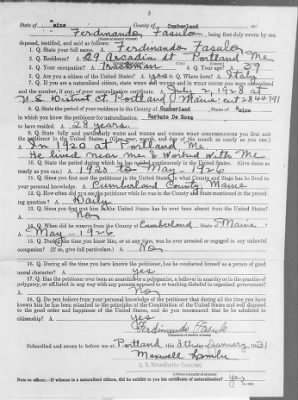 2
State of Maine County of Cumberland ss:
Ferdinando Fasulo, being first duly sworn by me,
deposed, testified, and said as follows:
1. Q. State your full name. A. Ferdinando Fasulo
2. Q. Residence? A. 29 Arcadia St Portland Me
3. Q. Occupation? A. 4. Q. Your age? A. 39
5. Q. Are you a citizen of the United States? A. yes 6. Q. Where born? A. Italy
7. Q. If you are a naturalized citizen, state when and where and in what court you were naturalized
and the number, if any, of your naturalization certificate. A. July 2, 1928 at
U.S. District Ct. Portland Maine,
8. Q. State the period of your residence in the County of Cumberland State of Maine
in which you know the petitioner for naturalization,
to have resided. A. 28 years
9. Q. State fully and particularly when and where and under what circumstances you first met
the petitioner in the United States.
A. In 1920 at Portland Me.
He lived near me & Worked with Me
10. Q. State the period during which he has resided continuously in the United States.
A. 1920 to May - 1926
11. Q. Since you first met the petitioner in the United States in what County and State has he lived to
your personal knowledge. A. Cumberland County, Maine
12. Q. How often did you see the petitioner while he was in the County and State mentioned in the preceding
question? A. Daily
13. Q. Since you first met him in the United States has he ever been absent from the United States?
A. No
14. Q. When did he remove from the County of Cumberland, State of Maine
A. May - 1926
15. Q. During the time you have known him, or at any time, was he ever arrested or engaged in any unlawful
occupation? (If so, give full particulars.) A. No
16. Q. During all the time you have known the petitioner, has he conducted himself as a person of good
moral character? A. yes
17. Q. Has the petitioner ever been an anarchist, a polygamist, a believer in anarchy or in the practice of
polygamy, or affiliated in any way with any persons opposed to or teaching disbelief in organized government?
A. No
18. Q. Do you believe from your personal knowledge of the petitioner that during all the time you have
known him he has been attached to the principles of the Constitution of the United States and well disposed
to the good order and happiness of the United States, and do you recommend that he be admitted to
citizenship? A. yes
Ferdinando Fasulo
Subscribed and sworn to before me at Portland this day of January, 1931
Maxwell
U. S. Naturalization Examiner
Note to officer.—If witness is a naturalized citizen, did he exhibit to you his certificate of naturalization? yes